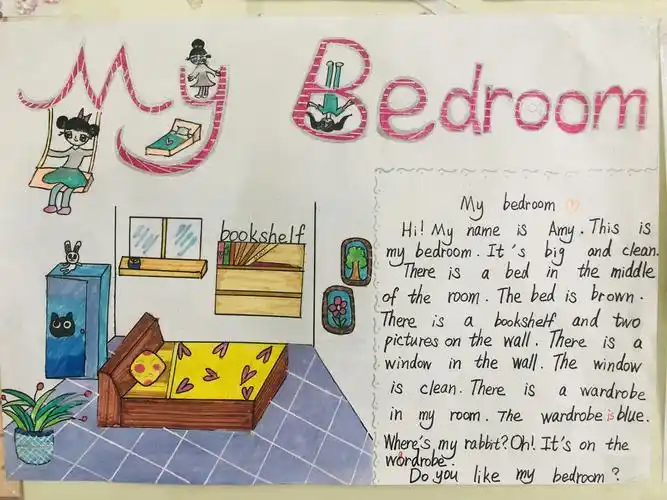 My Bedroom
bookshelf
My bedroom
Hi! My name is Amy. This is
my bedroom. It's big and clean.
There is a bed in the middle
of the room. The bed is brown.
There is a bookshelf and two
pictures on the wall. There is a
window in the wall. The window
is clean. There is a wardrobe
in my room. The wardrobe is blue.
Where's my rabbit? Oh! It's on the
wordrobe.
Do you like my bedroom?